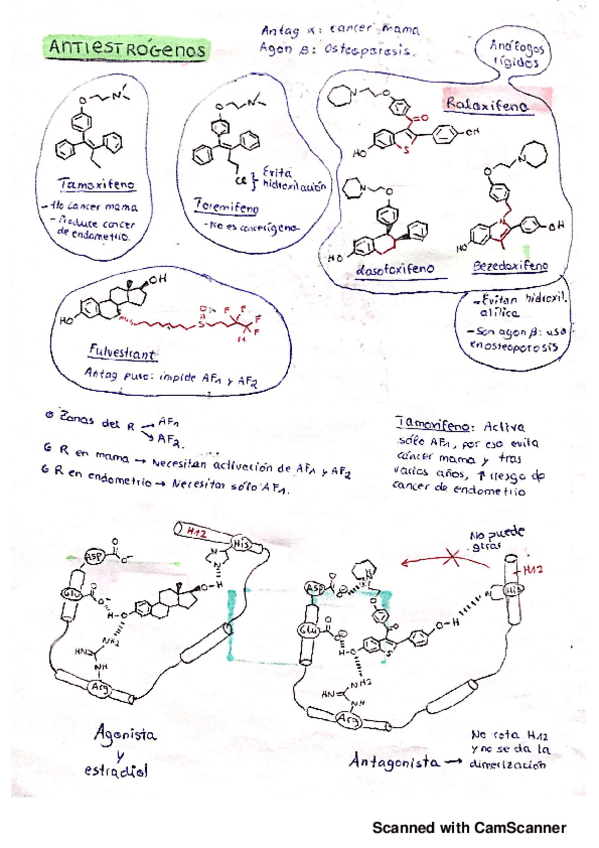 ANTIESTRÓGENOS
Antag α: cancer mama
Agon β: Osteoporosis.
Análogos
rígidos
Raloxifeno
Tamoxifeno
- tto cancer mama
- Produce cancer
de endometrio.
Evita
hidroxilación
Toremifeno
- No es cancerígeno
Lasofoxifeno
Bezedoxifeno
- Evitan hidroxil.
alílica
- Son agon β: uso
en osteoporosis
Fulvestrant
Antag puro: impide AF1 y AF2
Zonas del R → AF1
→ AF2.
R en mama → Necesitan activación de AF1 y AF2
R en endometrio → Necesitan sólo AF1.
Tamoxifeno: Activa
sólo AF1, por eso evita
cáncer mama y tras
varios años, ↑ riesgo de
cancer de endometrio
H12
His
Asp
Glu
Arg
Agonista
y
estradiol
No puede
girar
H12
His
Asp
Glu
Arg
Antagonista → No rota H12
y no se da la
dimerización
Scanned with CamScanner